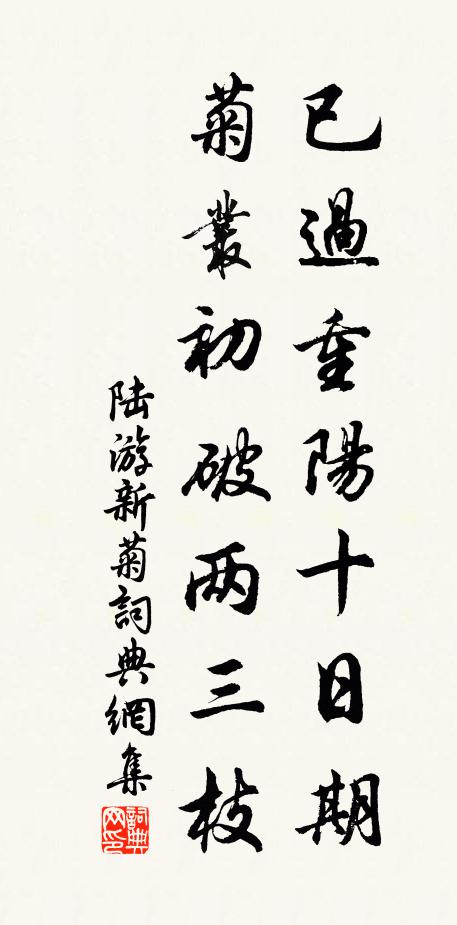 已過重陽十日期
菊叢初破两三枝
陆游新菊詞典網集
詞典网印